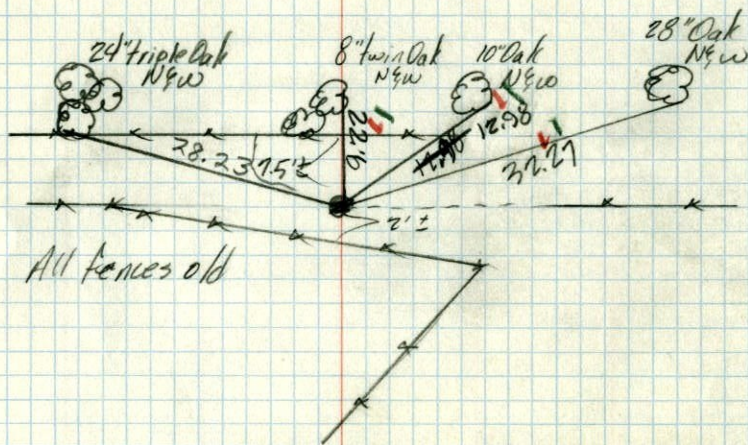 24" triple Oak
N&W
8" twin Oak
N&W
10" Oak
N&W
28" Oak
N&W
28.23
7.5'±
22.16
12.98
32.27
2'±
All fences old